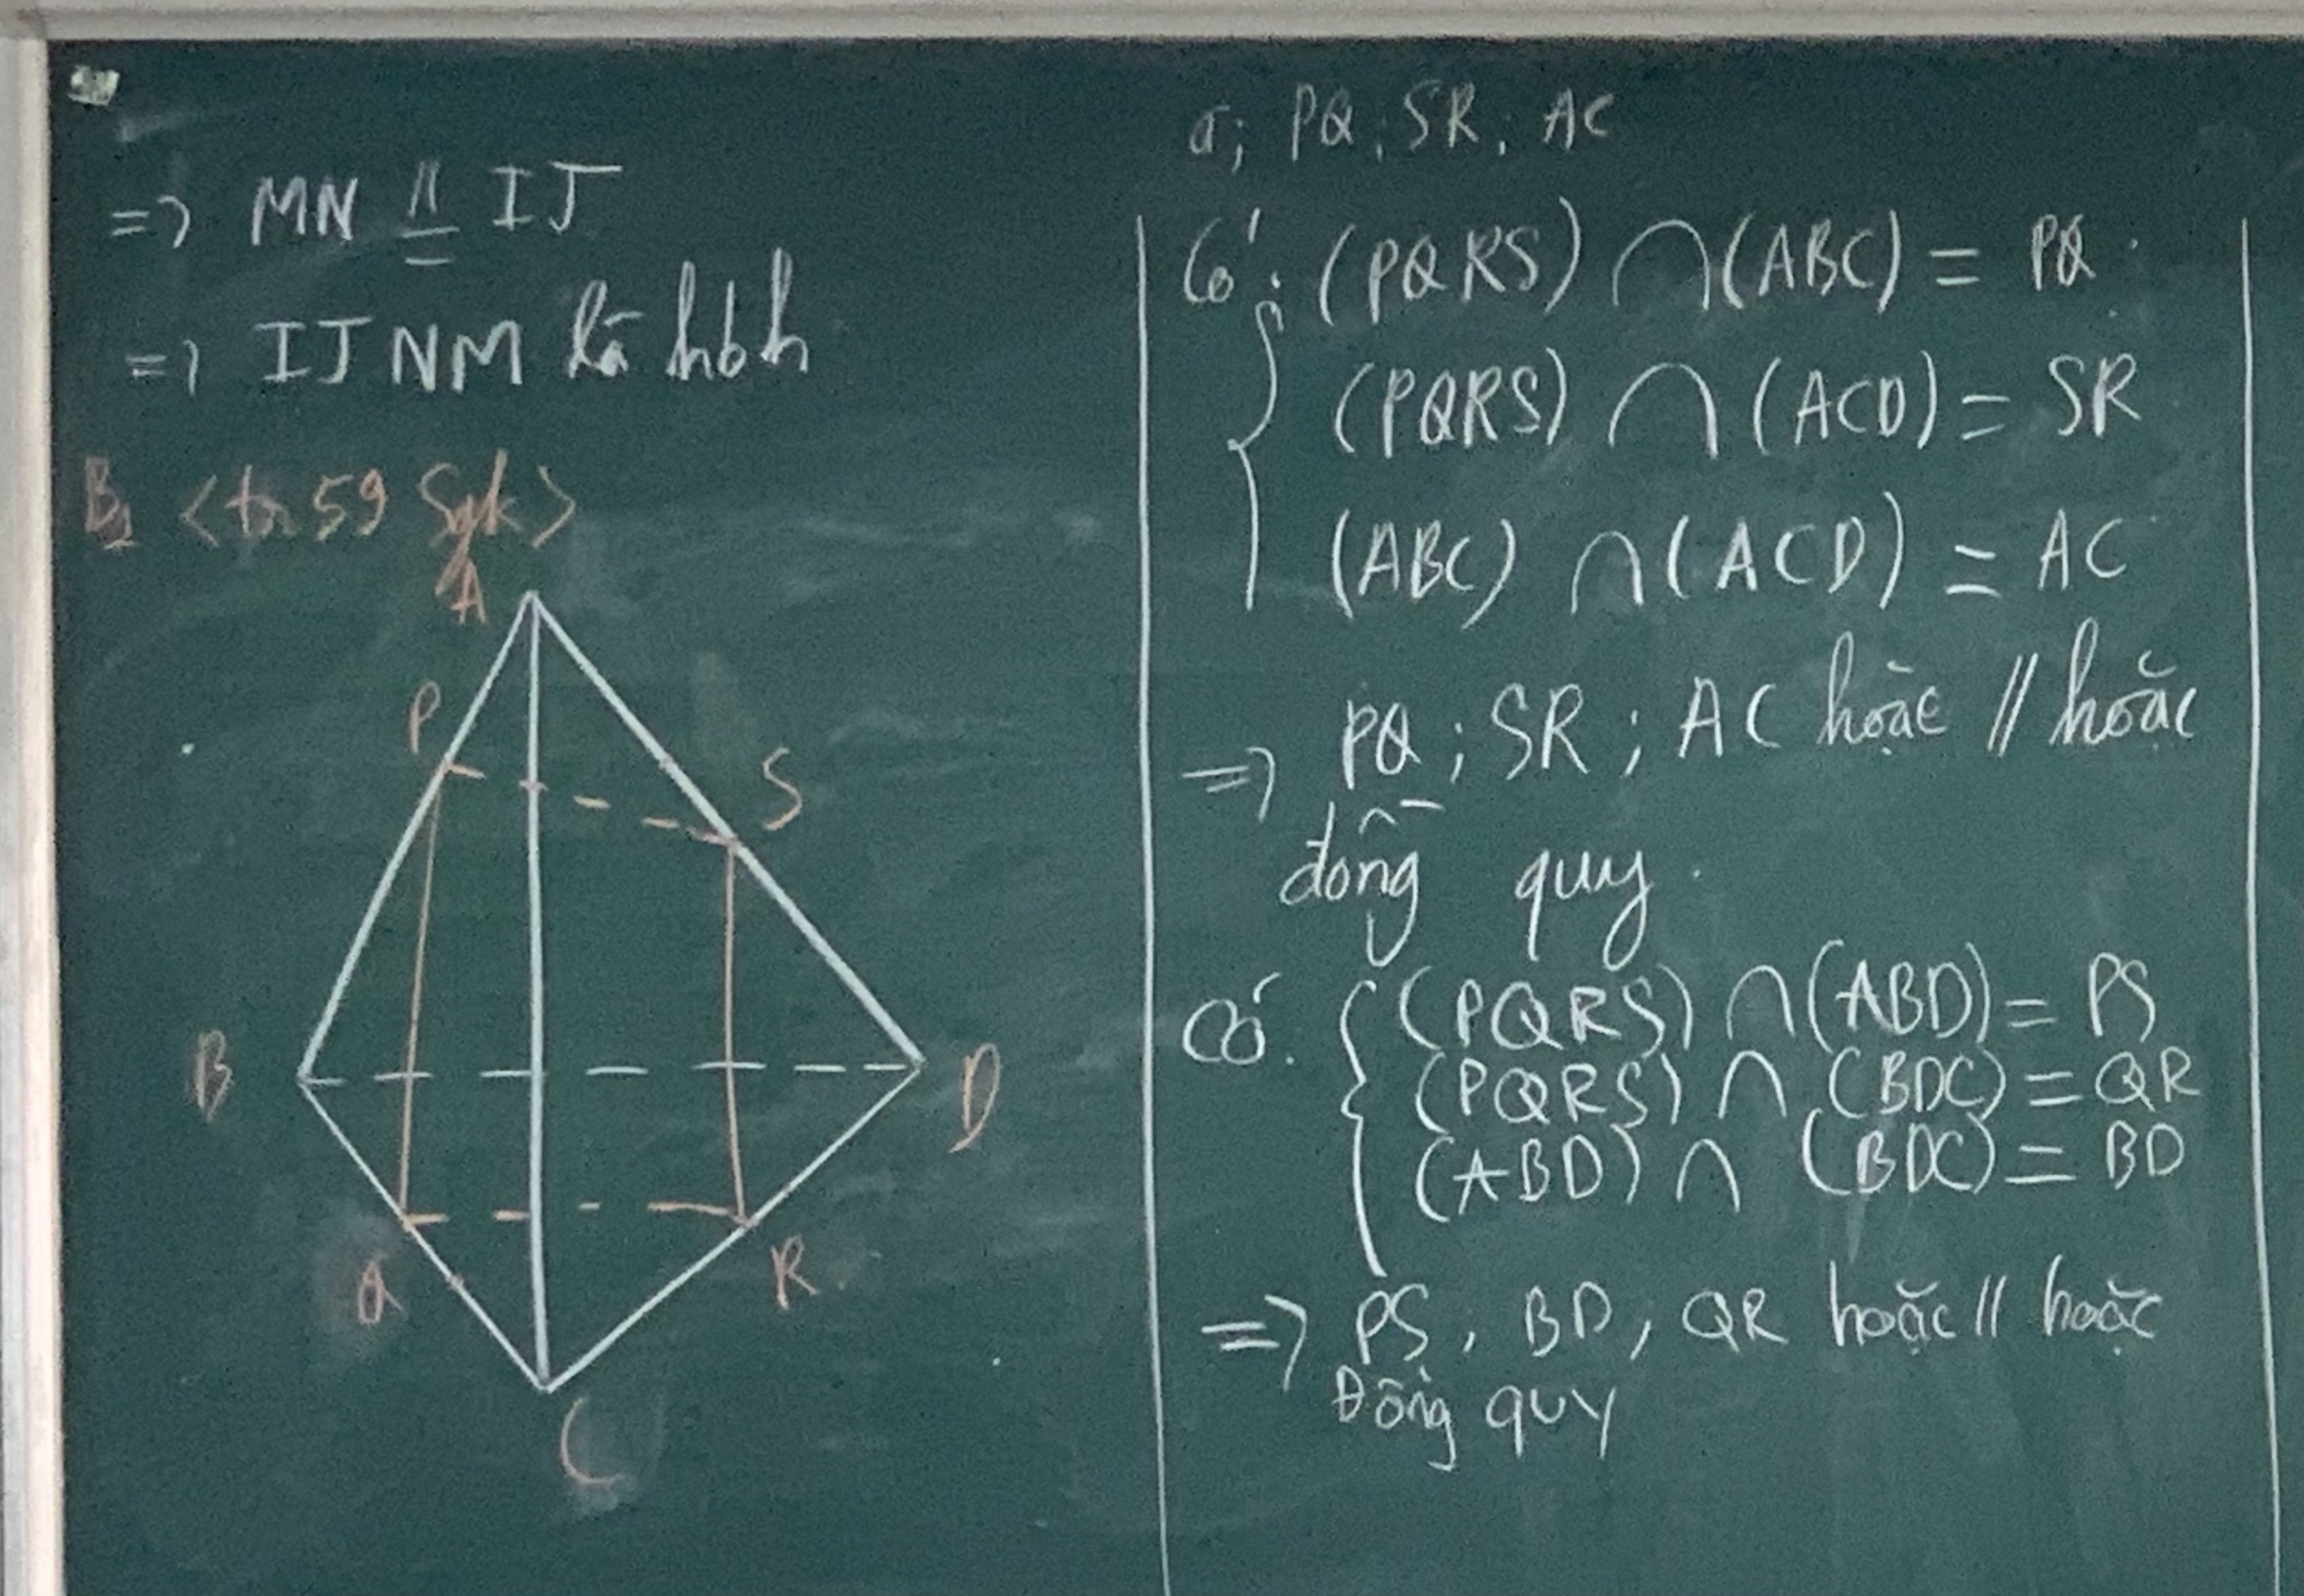 => MN // = IJ
=> IJNM là hbh
B1 <tr 59 Sgk>
A
P
S
B
D
Q
R
C
a; PQ; SR; AC
Có: (PQRS) ∩ (ABC) = PQ
(PQRS) ∩ (ACD) = SR
(ABC) ∩ (ACD) = AC
=> PQ; SR; AC hoặc // hoặc
đồng quy.
Có: (PQRS) ∩ (ABD) = PS
(PQRS) ∩ (BDC) = QR
(ABD) ∩ (BDC) = BD
=> PS, BD, QR hoặc // hoặc
Đồng quy